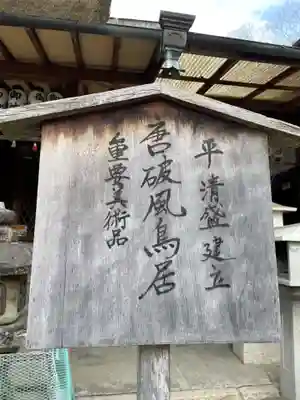 平清盛建立
唐破風鳥居
重要美術品